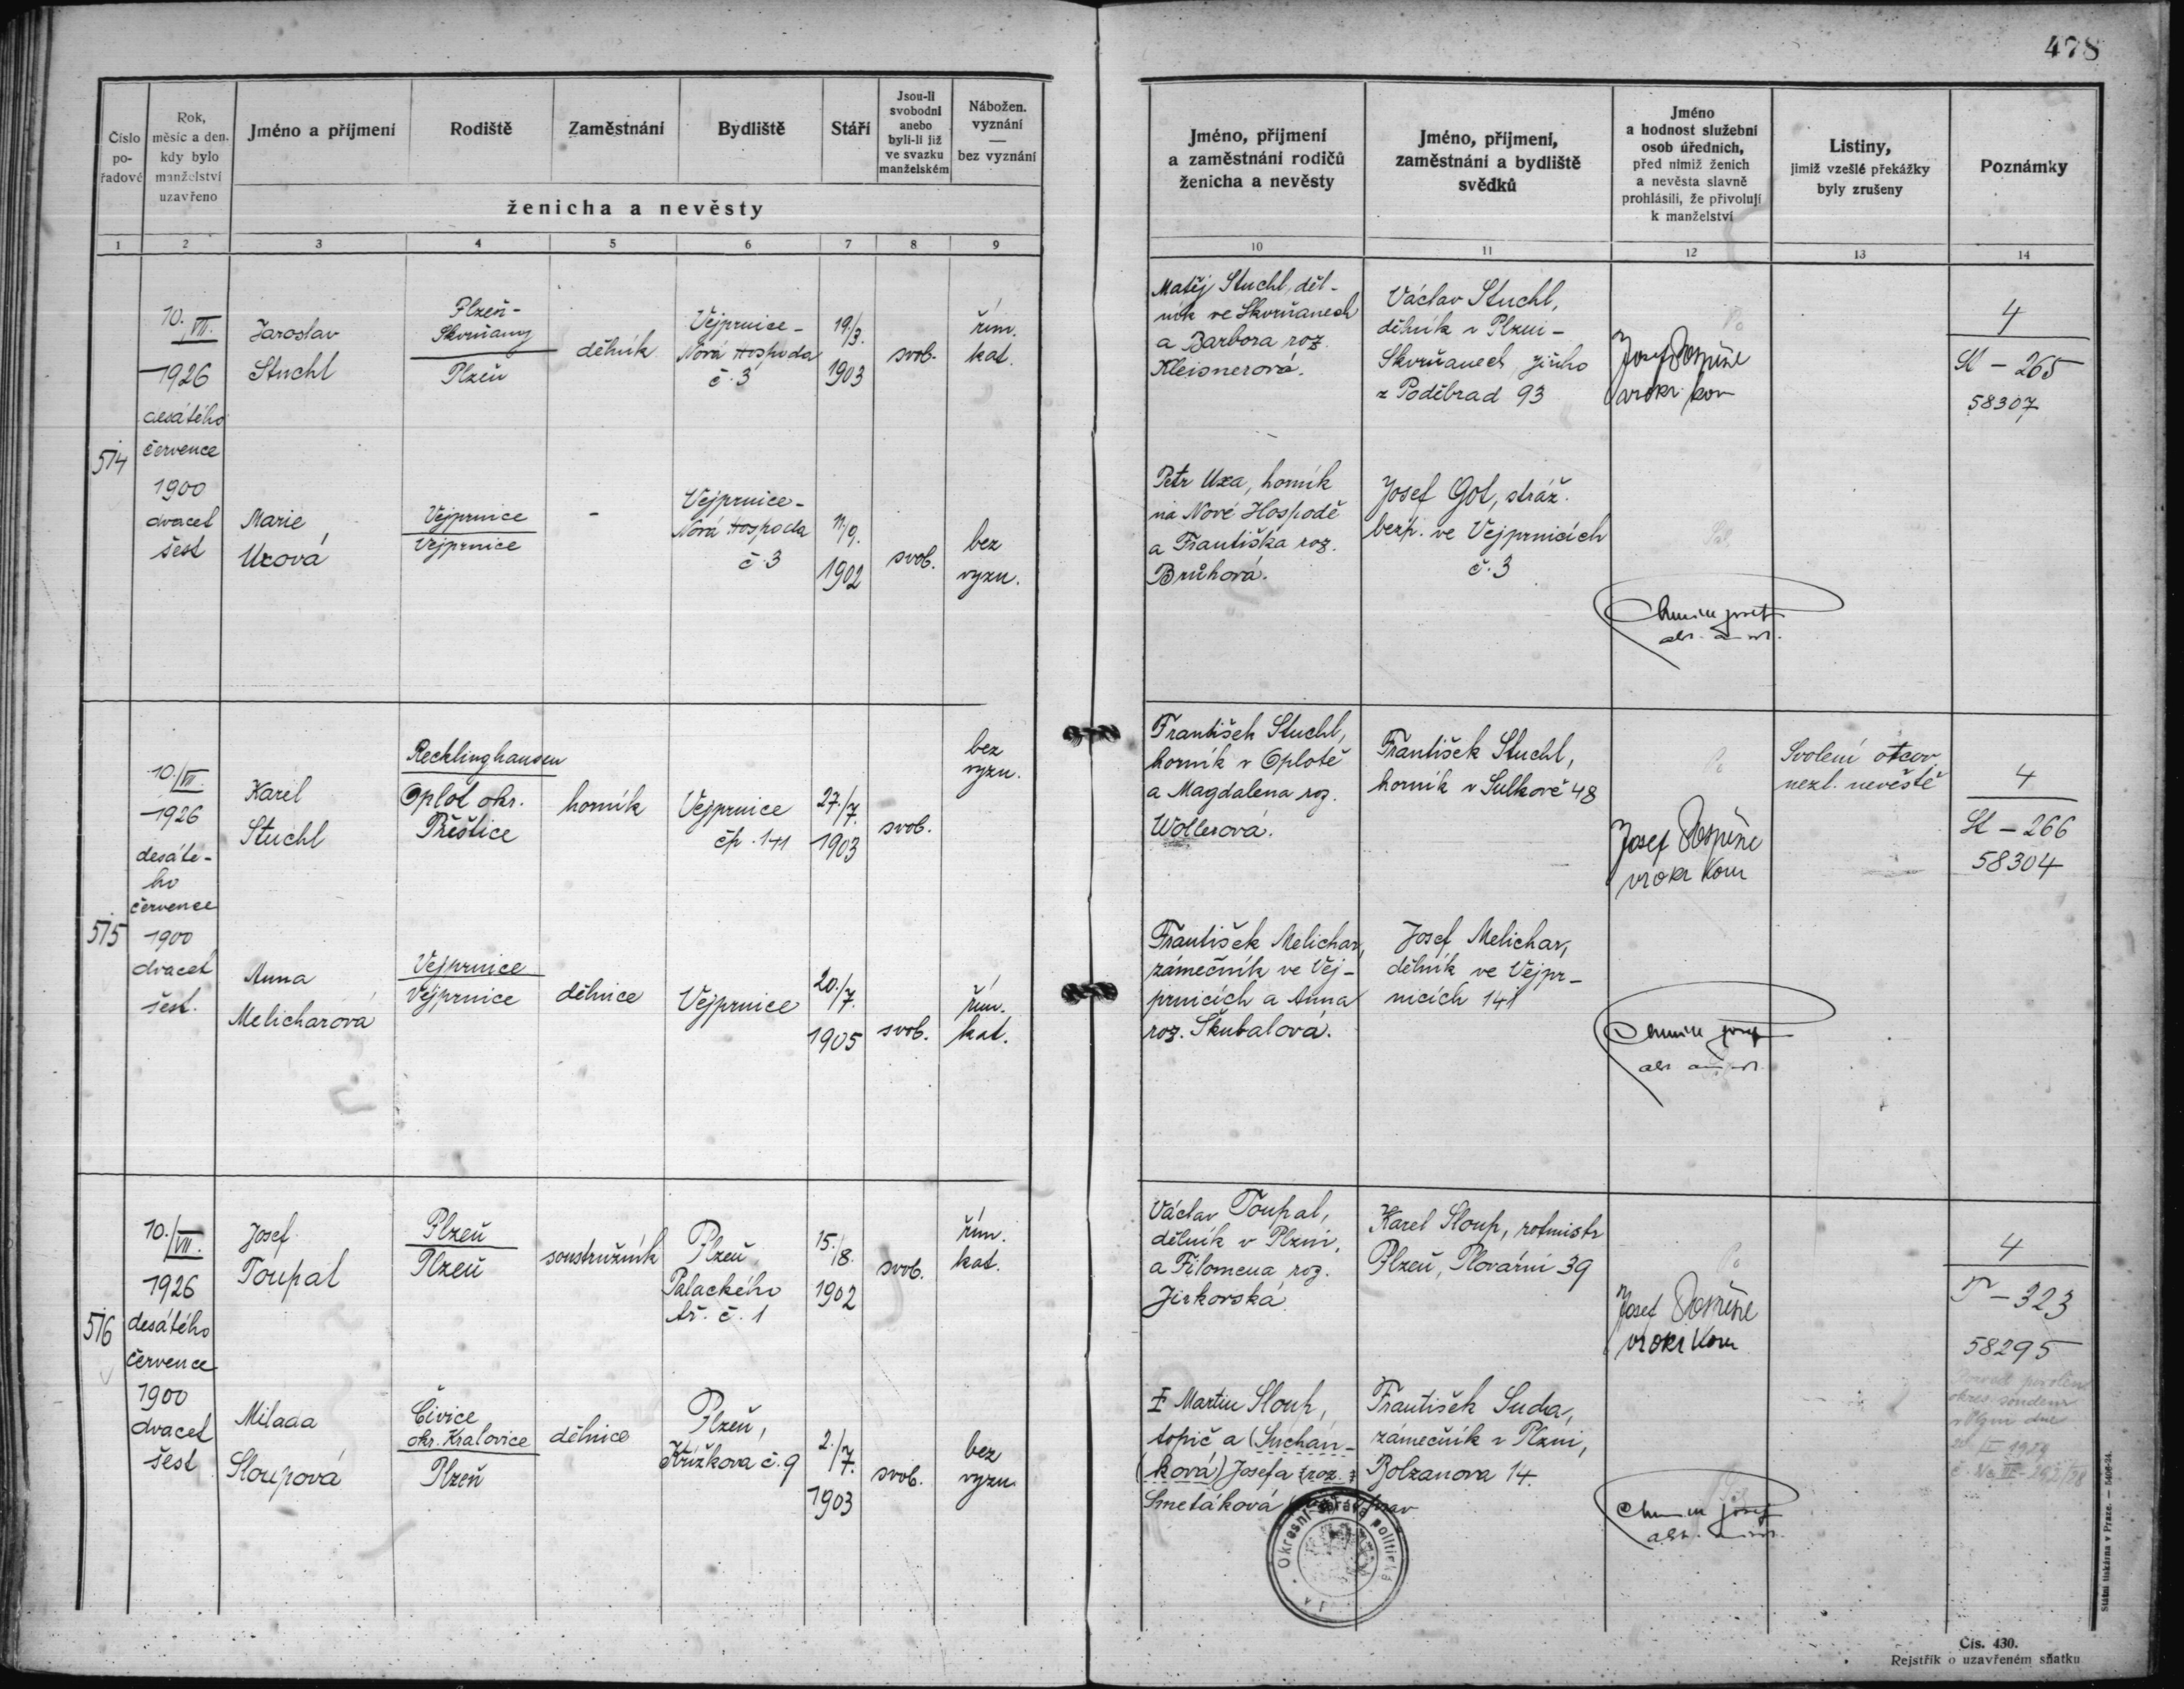 478
Číslo
po-
řadové
Rok,
měsíc a den.
kdy bylo
manželství
uzavřeno
Jméno a příjmení
Rodiště
Zaměstnání
Bydliště
Stáří
Jsou-li
svobodni
anebo
byli-li již
ve svazku
manželském
Nábožen.
vyznání
—
bez vyznání
ženicha a nevěsty
1 2 3 4 5 6 7 8 9
Jméno, příjmení
a zaměstnání rodičů
ženicha a nevěsty
Jméno, příjmení,
zaměstnání a bydliště
svědků
Jméno
a hodnost služební
osob úředních,
před nimiž ženich
a nevěsta slavně
prohlásili, že přivolují
k manželství
Listiny,
jimiž vzešlé překážky
byly zrušeny
Poznámky
10 11 12 13 14
514
10./VII.
1926
desátého
července
1900
dvacet
šest
Jaroslav
Stuchl
Plzeň-
Skvrňany
Plzeň
dělník
Vejprnice-
Nová Hospoda
č. 3
19./3.
1903
svob.
řím.
kat.
Matěj Stuchl, děl-
ník ve Skvrňanech
a Barbora roz.
Kleisnerová.
Václav Stuchl,
dělník v Plzni-
Skvrňanech, Jiřího
z Poděbrad 93
Josef Pospíšil
4
St - 265
58307
Marie
Uxová
Vejprnice
Vejprnice
-
Vejprnice-
Nová Hospoda
č. 3
11./9.
1902
svob.
bez
vyzn.
Petr Uxa, horník
na Nové Hospodě
a Františka roz.
Brůhová.
Josef Got, stráž.
bezp. ve Vejprnicích
č. 3
515
10./VII
1926
desáté-
ho
července
1900
dvacet
šest.
Karel
Stuchl
Recklinghausen
Oplot okr.
Přeštice
horník
Vejprnice
čp. 141
27./7.
1903
svob.
bez
vyzn.
František Stuchl,
horník v Oplotě
a Magdalena roz.
Wollerová.
František Stuchl,
horník v Sulkově 48
Josef Pospíšil
Svolení otcov.
nezl. nevěstě
4
St - 266
58304
Anna
Melicharová
Vejprnice
Vejprnice
dělnice
Vejprnice
20./7.
1905
svob.
řím.
kat.
František Melichar,
zámečník ve Vej-
prnicích a Anna
roz. Škubalová.
Josef Melichar,
dělník ve Vejpr-
nicích 141
516
10./VII.
1926
desátého
července
1900
dvacet
šest
Josef
Toupal
Plzeň
Plzeň
soustružník
Plzeň
Palackého
tř. č. 1
15./8.
1902
svob.
řím.
kat.
Václav Toupal,
dělník v Plzni,
a Filomena roz.
Jirkovská.
Karel Sloup, rotmistr
Plzeň, Plovární 39
Josef Pospíšil
4
T - 323
58295
Milada
Sloupová
Čivice
okr. Kralovice
Plzeň
dělnice
Plzeň,
Křížkova č. 9
2./7.
1903
svob.
bez
vyzn.
Martin Sloup,
topič a (Suchán-
ková) Josefa (roz.
Smetáková
František Suda,
zámečník v Plzni,
Bolzanova 14.
Okresní správa politická
Státní tiskárna v Praze. — 5406-24.
Čís. 430.
Rejstřík o uzavřeném sňatku